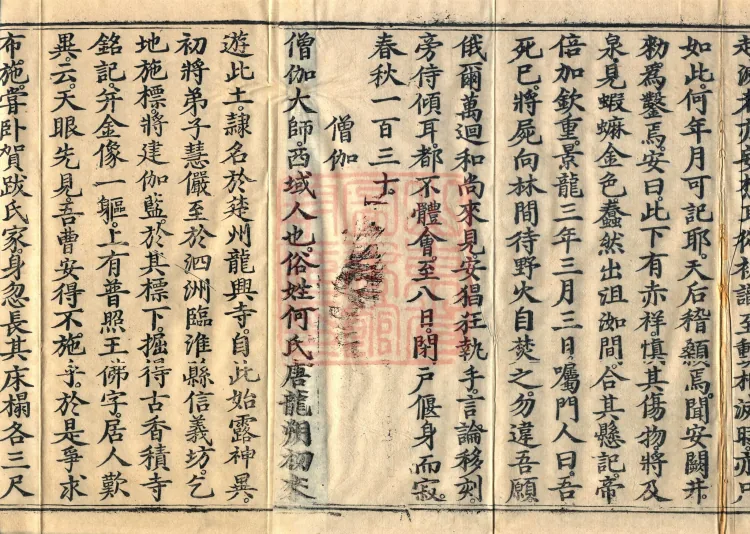 如此。何年月可記耶。天后稽顙焉。聞安闢井。
勑為鑿焉。安曰。此下有赤祥。慎其傷物。將及
泉。見蝦蟆金色。蠢然出沮洳間。合其懸記。帝
倍加欽重。景龍三年三月三日。囑門人曰。吾
死已。將屍向林間。待野火自焚之。勿違吾願。
俄爾萬迴和尚來見安。猖狂執手。言論移刻。
旁侍傾耳。都不體會。至八日。閉戶偃身而寂。
春秋一百三十。
僧伽
僧伽大師。西域人也。俗姓何氏。唐龍朔初來
遊此土。隸名於楚州龍興寺。自此始露神異。
初將弟子慧儼至於泗洲臨淮縣信義坊。乞
地施標。將建伽藍。於其標下。掘得古香積寺
銘記。并金像一軀。上有普照王佛字。居人歎
異。云。天眼先見。吾曹安得不施乎。於是爭求
布施。甞卧賀跋氏家。身忽長其床榻各三尺